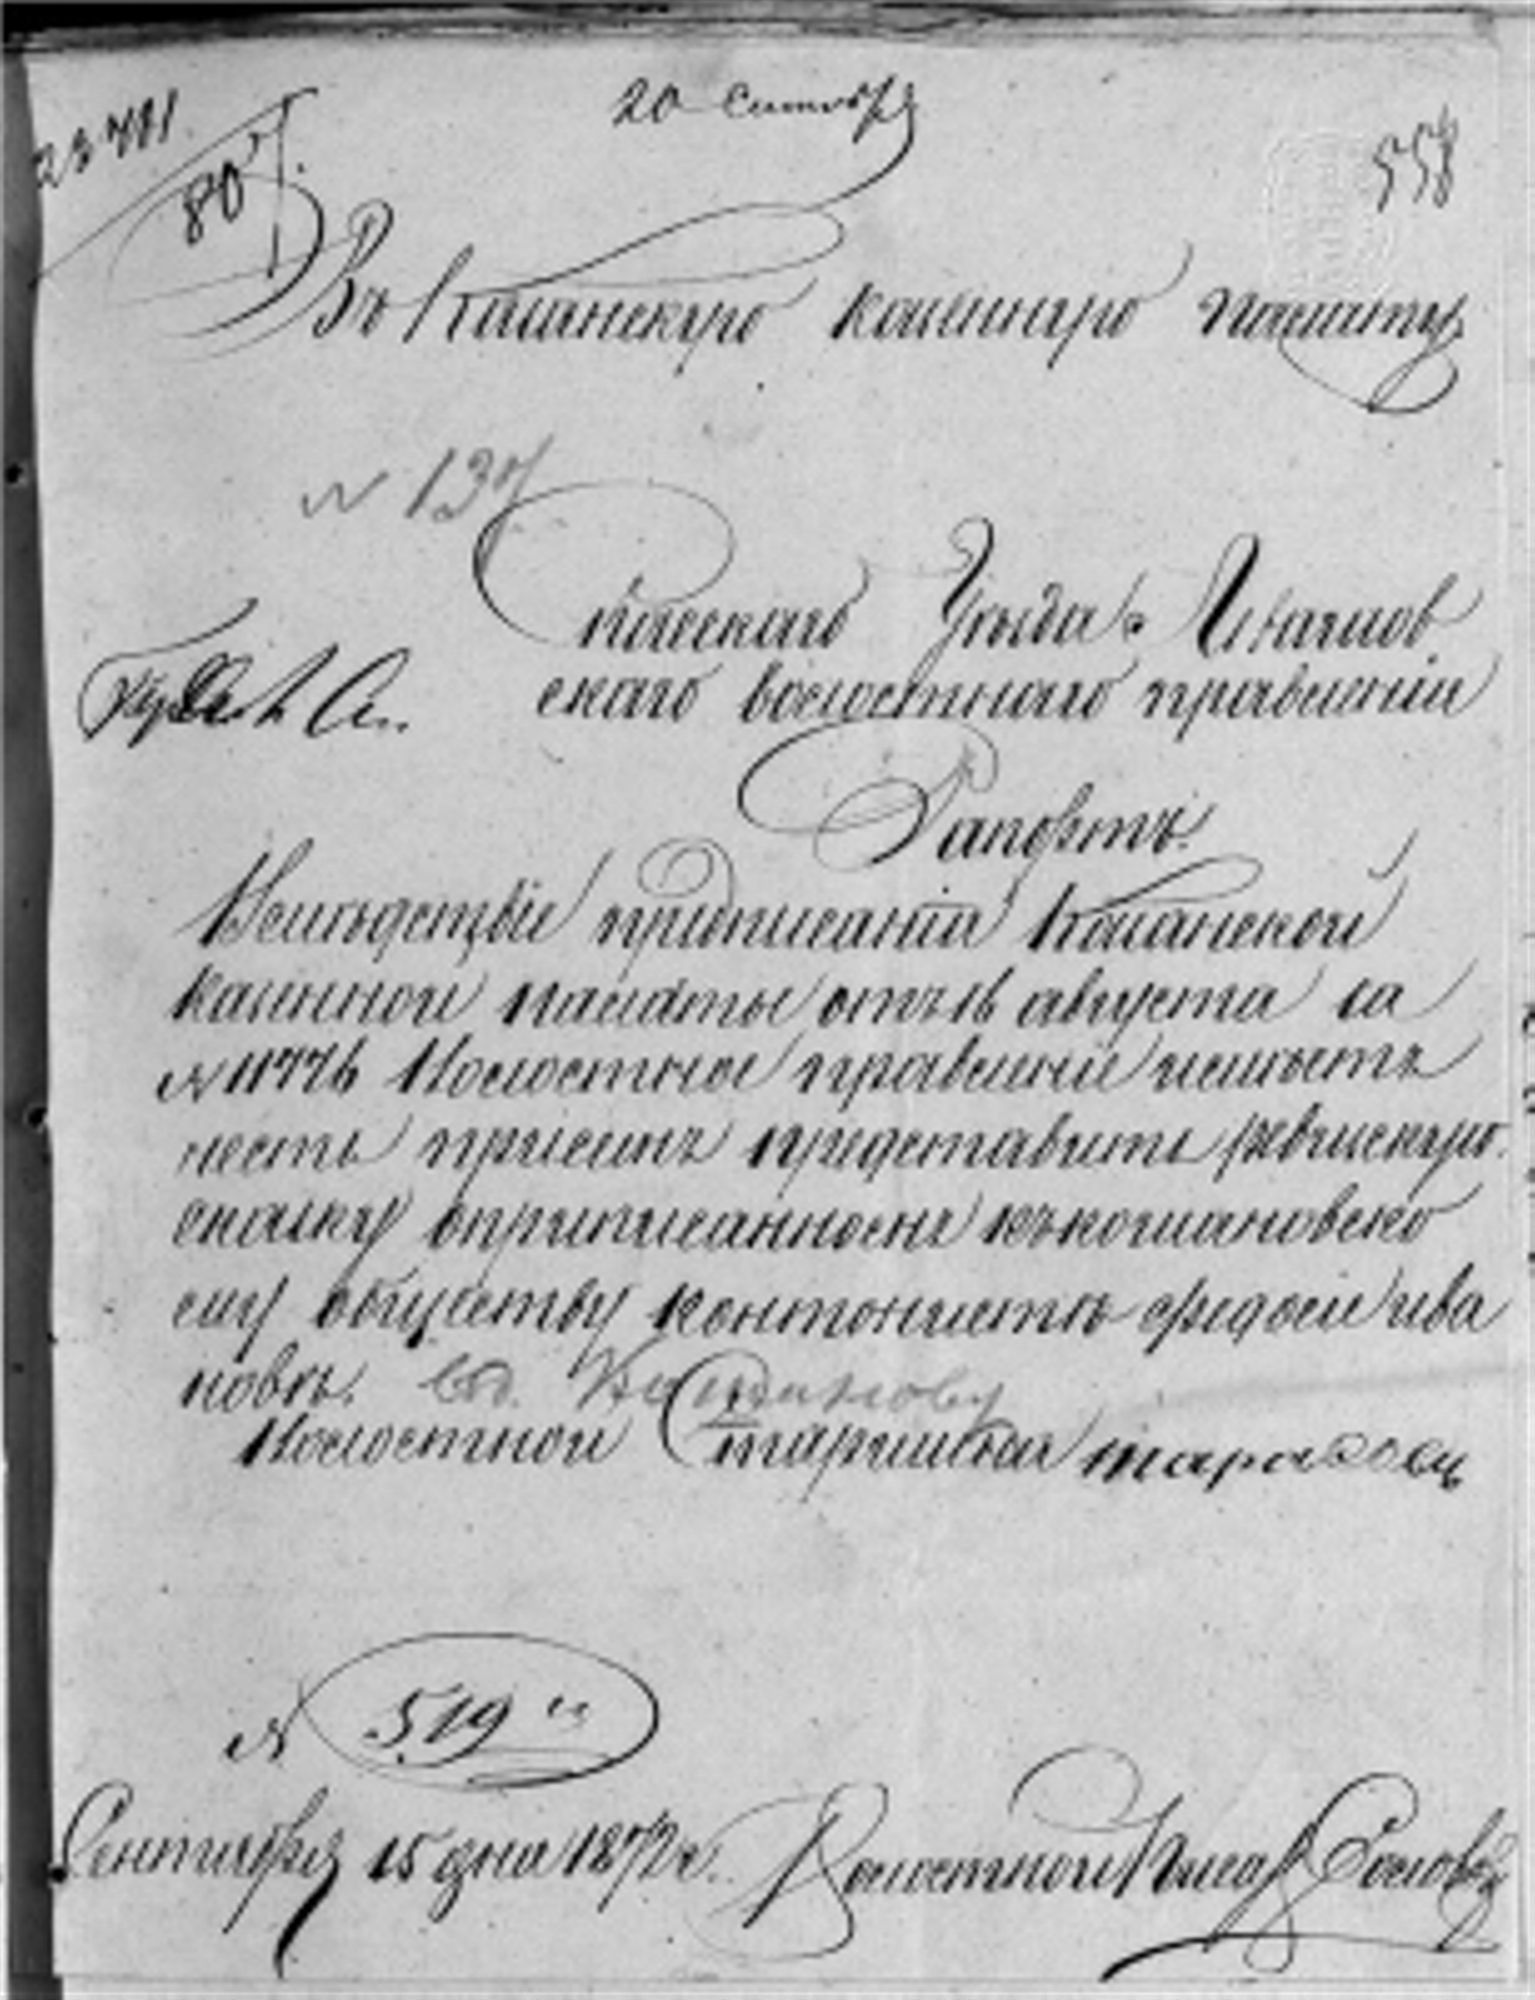 20 Сентября
558
80
Въ Казанскую казенную палату
№ 137
Спасскаго Уѣзда
скаго волостнаго правленія
Рапортъ.
Вслѣдствіе предписанія Казанской
казенной палаты отъ 16 августа за
№ 11776 Волостное правленіе имѣетъ
честь присемъ представить ревискую
скаску оприписанномъ
ему обществу кантонистѣ ива
новѣ.
Волостной Старшина
№ 519
Сентября 15 дня 1872 г. Волостной Писарь